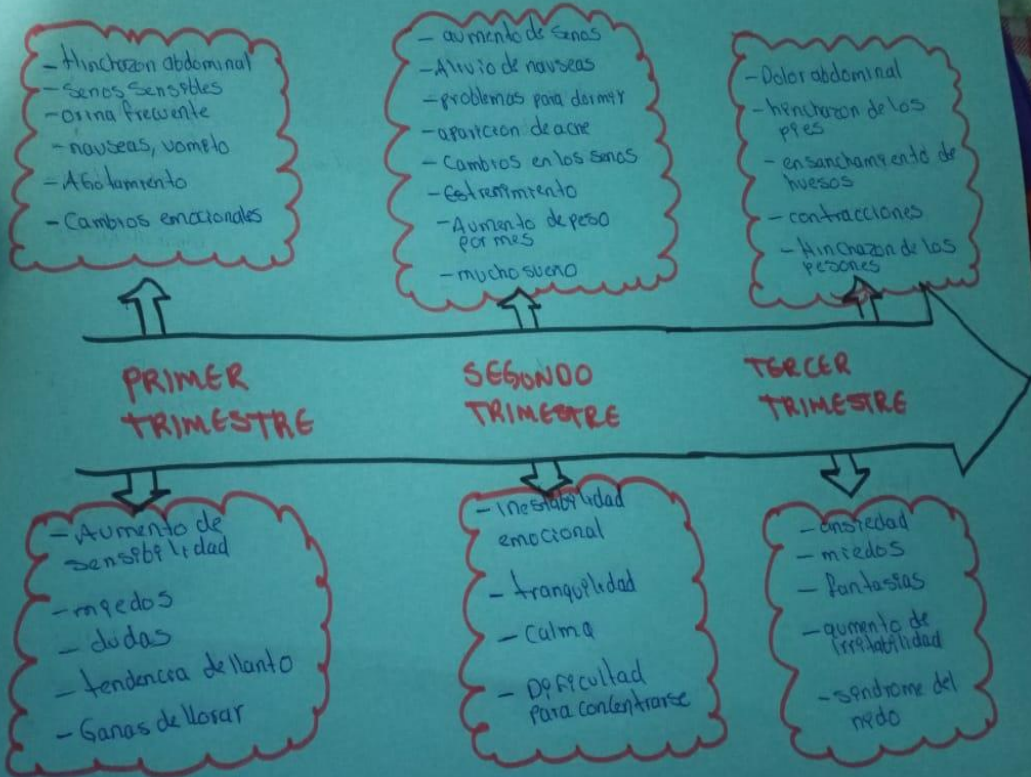 - Hinchazon abdominal
- Senos sensibles
- orina frecuente
- nauseas, vomito
- Agotamiento
- Cambios emocionales
- aumento de senos
- Alivio de nauseas
- problemas para dormir
- aparicion de acne
- Cambios en los senos
- Estrenimiento
- Aumento de peso
por mes
- mucho sueno
- Dolor abdominal
- hinchazon de los
pies
- ensanchamiento de
huesos
- contracciones
- Hinchazon de los
pesones
PRIMER
TRIMESTRE
SEGUNDO
TRIMESTRE
TERCER
TRIMESTRE
- Aumento de
sensibilidad
- miedos
- dudas
- tendencia de llanto
- Ganas de llorar
- Inestabilidad
emocional
- tranquilidad
- Calma
- Dificultad
para concentrarse
- ansiedad
- miedos
- fantasias
- aumento de
irritabilidad
- sindrome del
nido